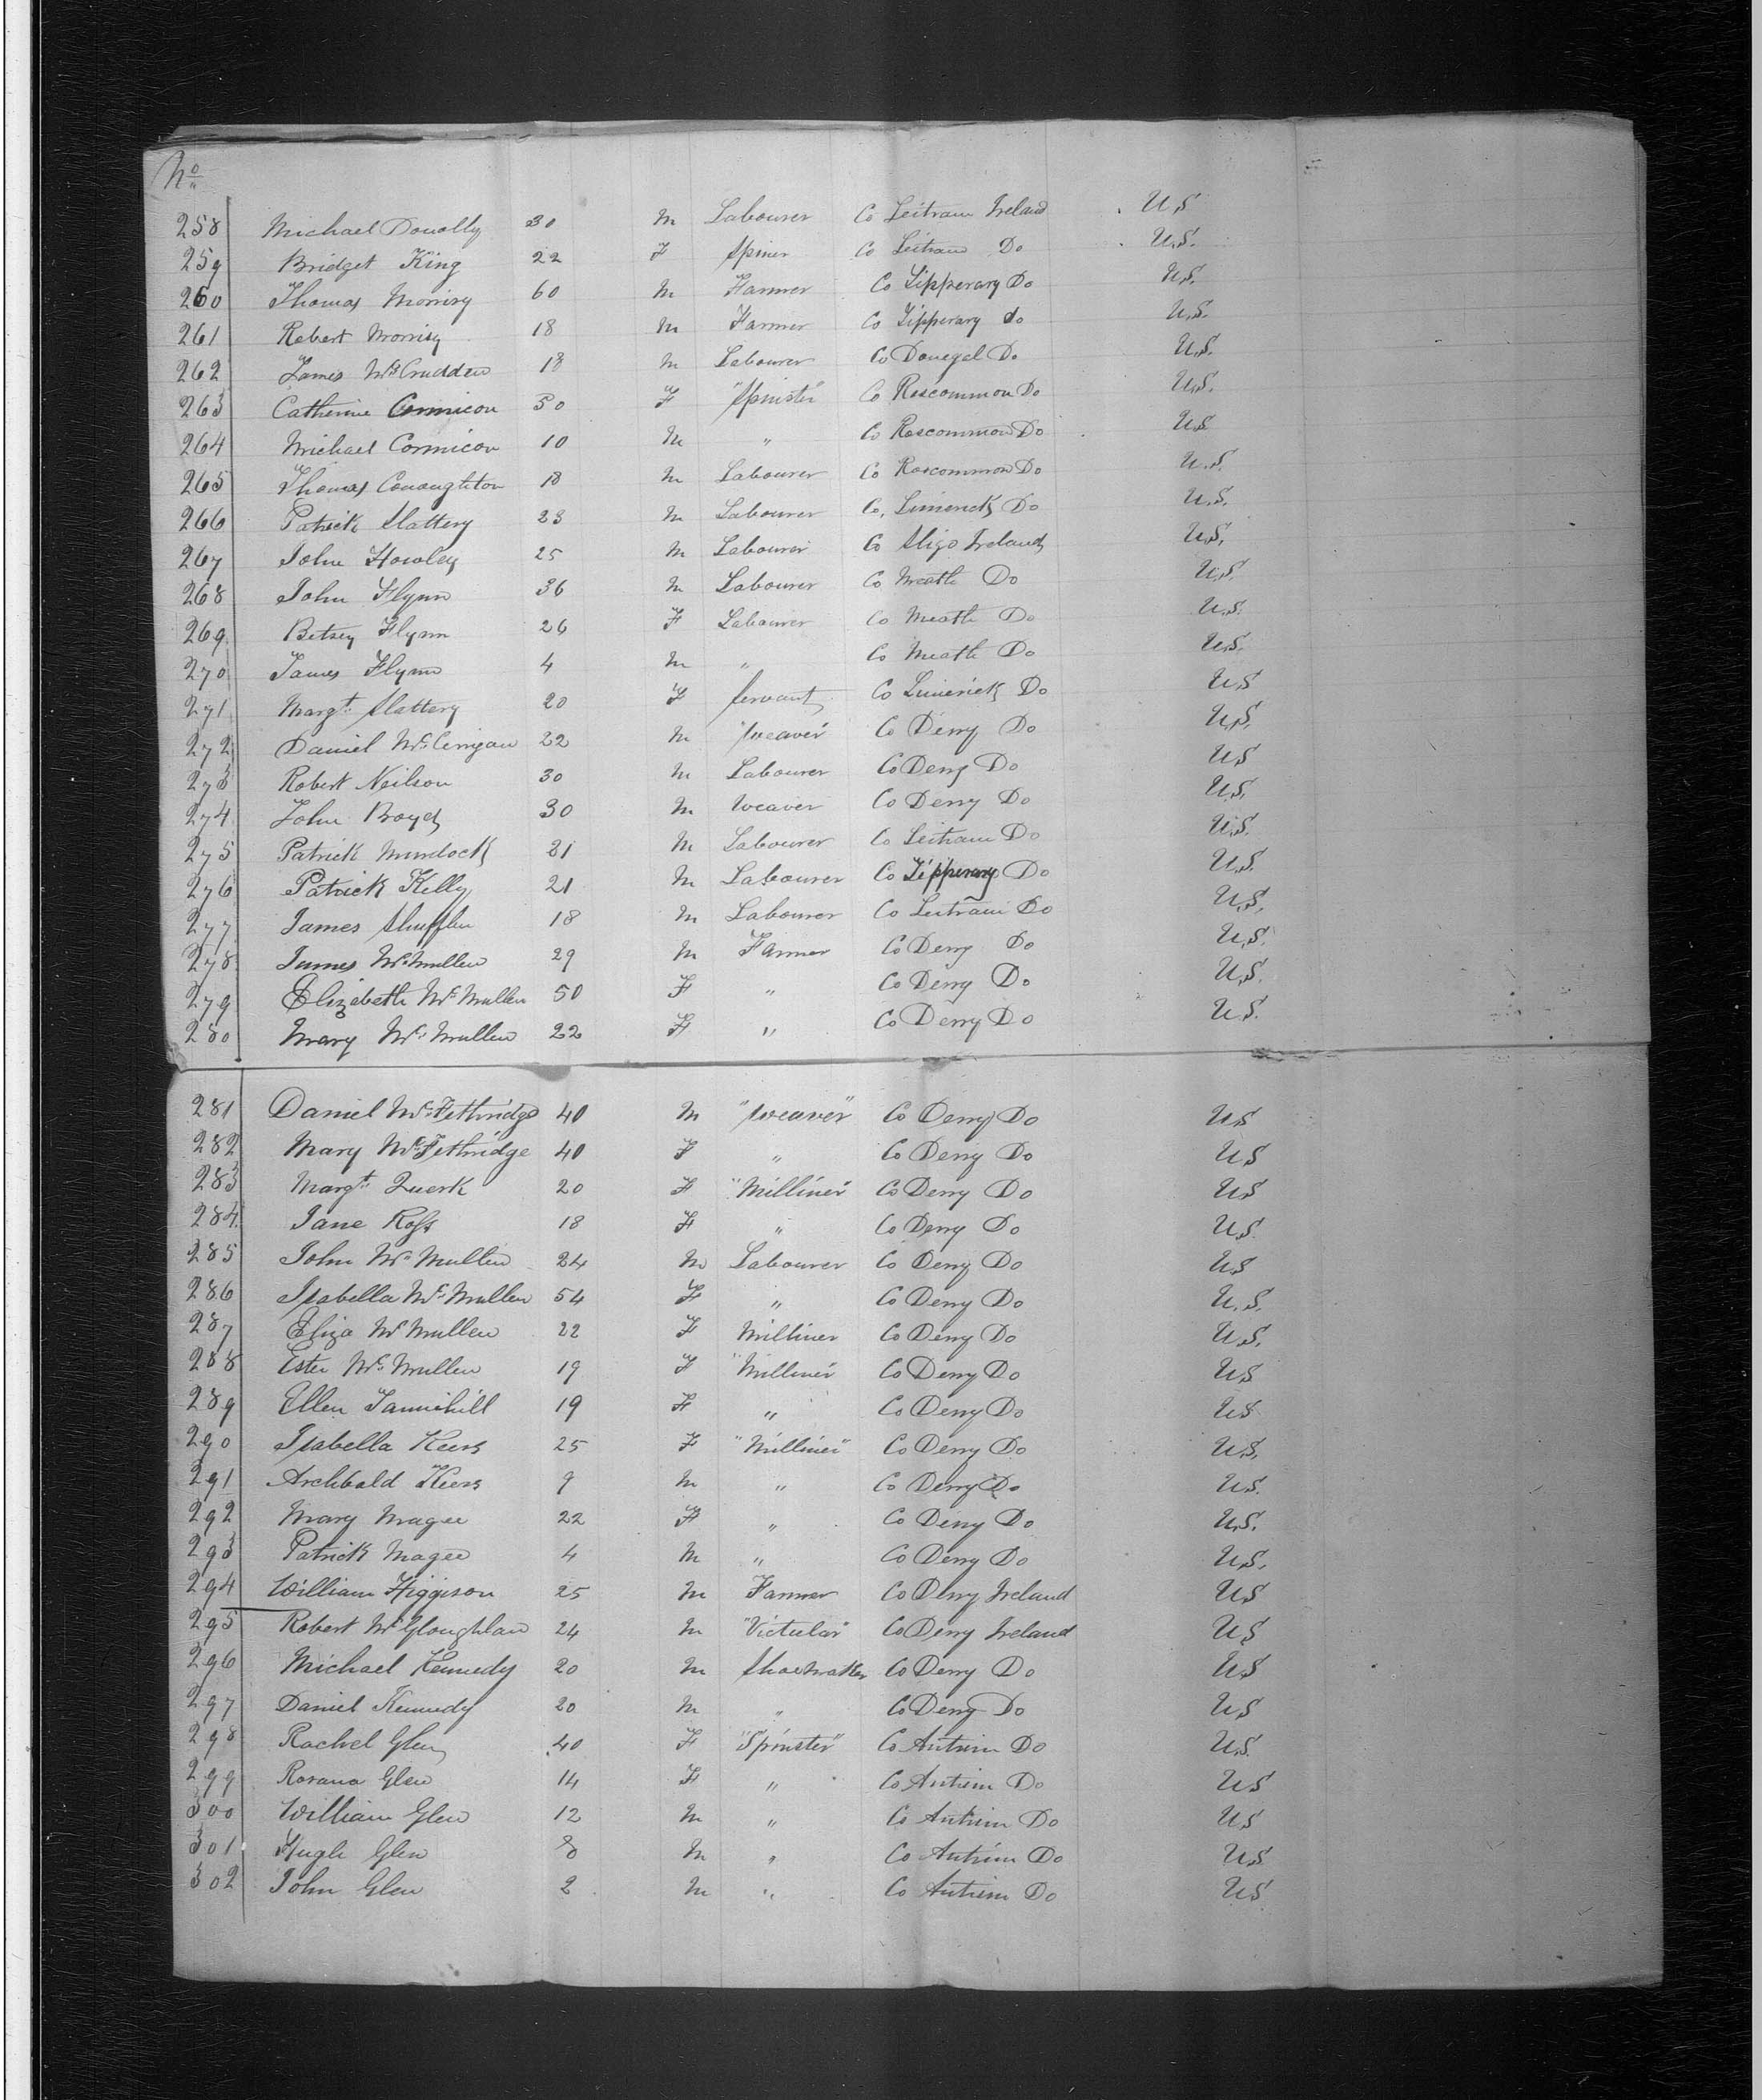 No
258 Michael Donolly 30 M Labourer Co Leitram Ireland U.S
259 Bridget King 22 F Spiner Co Leitram Do U.S.
260 Thomas Morrisy 60 M Farmer Co Tipperary Do U.S.
261 Robert Morrisy 18 M Farmer Co Tipperary do U.S.
262 James McCrudden 18 M Labourer Co Donegal Do U.S.
263 Catherine Cormicon 50 F "Spinster" Co Roscommon Do U.S.
264 Michael Cormicon 10 M " Co Roscommon Do U.S
265 Thomas Conoughton 18 M Labourer Co Roscommon Do U.S.
266 Patrick Slattery 23 M Labourer Co, Limerick Do U.S.
267 John Howley 25 M Labourer Co Sligo Ireland U.S.
268 John Flynn 36 M Labourer Co Meath Do U.S.
269 Betsey Flynn 26 F Labourer Co Meath Do U.S.
270 James Flynn 4 M " Co Meath Do U.S.
271 Margt. Slattery 20 F Servant Co Limerick Do U.S
272 Daniel McCerrigan 22 M "Weaver" Co Derry Do U.S.
273 Robert Neilson 30 M Labourer Co Derry Do U.S
274 John Boyd 30 M Weaver Co Derry Do U.S.
275 Patrick Murdock 21 M Labourer Co Leitram Do U.S.
276 Patrick Kelly 21 M Labourer Co Tipperary Do U.S.
277 James 18 M Labourer Co Leitram Do U.S.
278 James McMullen 29 M Farmer Co Derry Do U.S.
279 Elizabeth McMullen 50 F " Co Derry Do U.S.
280 Mary McMullen 22 F " Co Derry Do U.S.
281 Daniel McFethridge 40 M "Weaver" Co Derry Do U.S
282 Mary McFethridge 40 F " Co Derry Do U.S
283 Margt. Querk 20 F "Milliner" Co Derry Do U.S
284 Jane Ross 18 F " Co Derry Do U.S.
285 John McMullen 24 M Labourer Co Derry Do U.S
286 Isabella McMullen 54 F " Co Derry Do U.S.
287 Eliza McMullen 22 F Milliner Co Derry Do U.S.
288 Ester McMullen 19 F "Milliner" Co Derry Do U.S
289 Ellen Tannihill 19 F " Co Derry Do U.S
290 Isabella Keers 25 F "Milliner" Co Derry Do U.S.
291 Archbald Keers 9 M " Co Derry Do U.S.
292 Mary Magee 22 F " Co Derry Do U.S.
293 Patrick Magee 4 M " Co Derry Do U.S.
294 William Higgison 25 M Farmer Co Derry Ireland U.S
295 Robert McGloughlan 24 M "Victular" Co Derry Ireland U.S
296 Michael Kennedy 20 M Shoemaker Co Derry Do U.S
297 Daniel Kennedy 20 M " Co Derry Do U.S
298 Rachel Glen 40 F "Spinster" Co Antrim Do U.S.
299 Rosana Glen 14 F " Co Antrim Do U.S
300 William Glen 12 M " Co Antrim Do U.S
301 Hugh Glen 8 M " Co Antrim Do U.S
302 John Glen 2 M " Co Antrim Do U.S